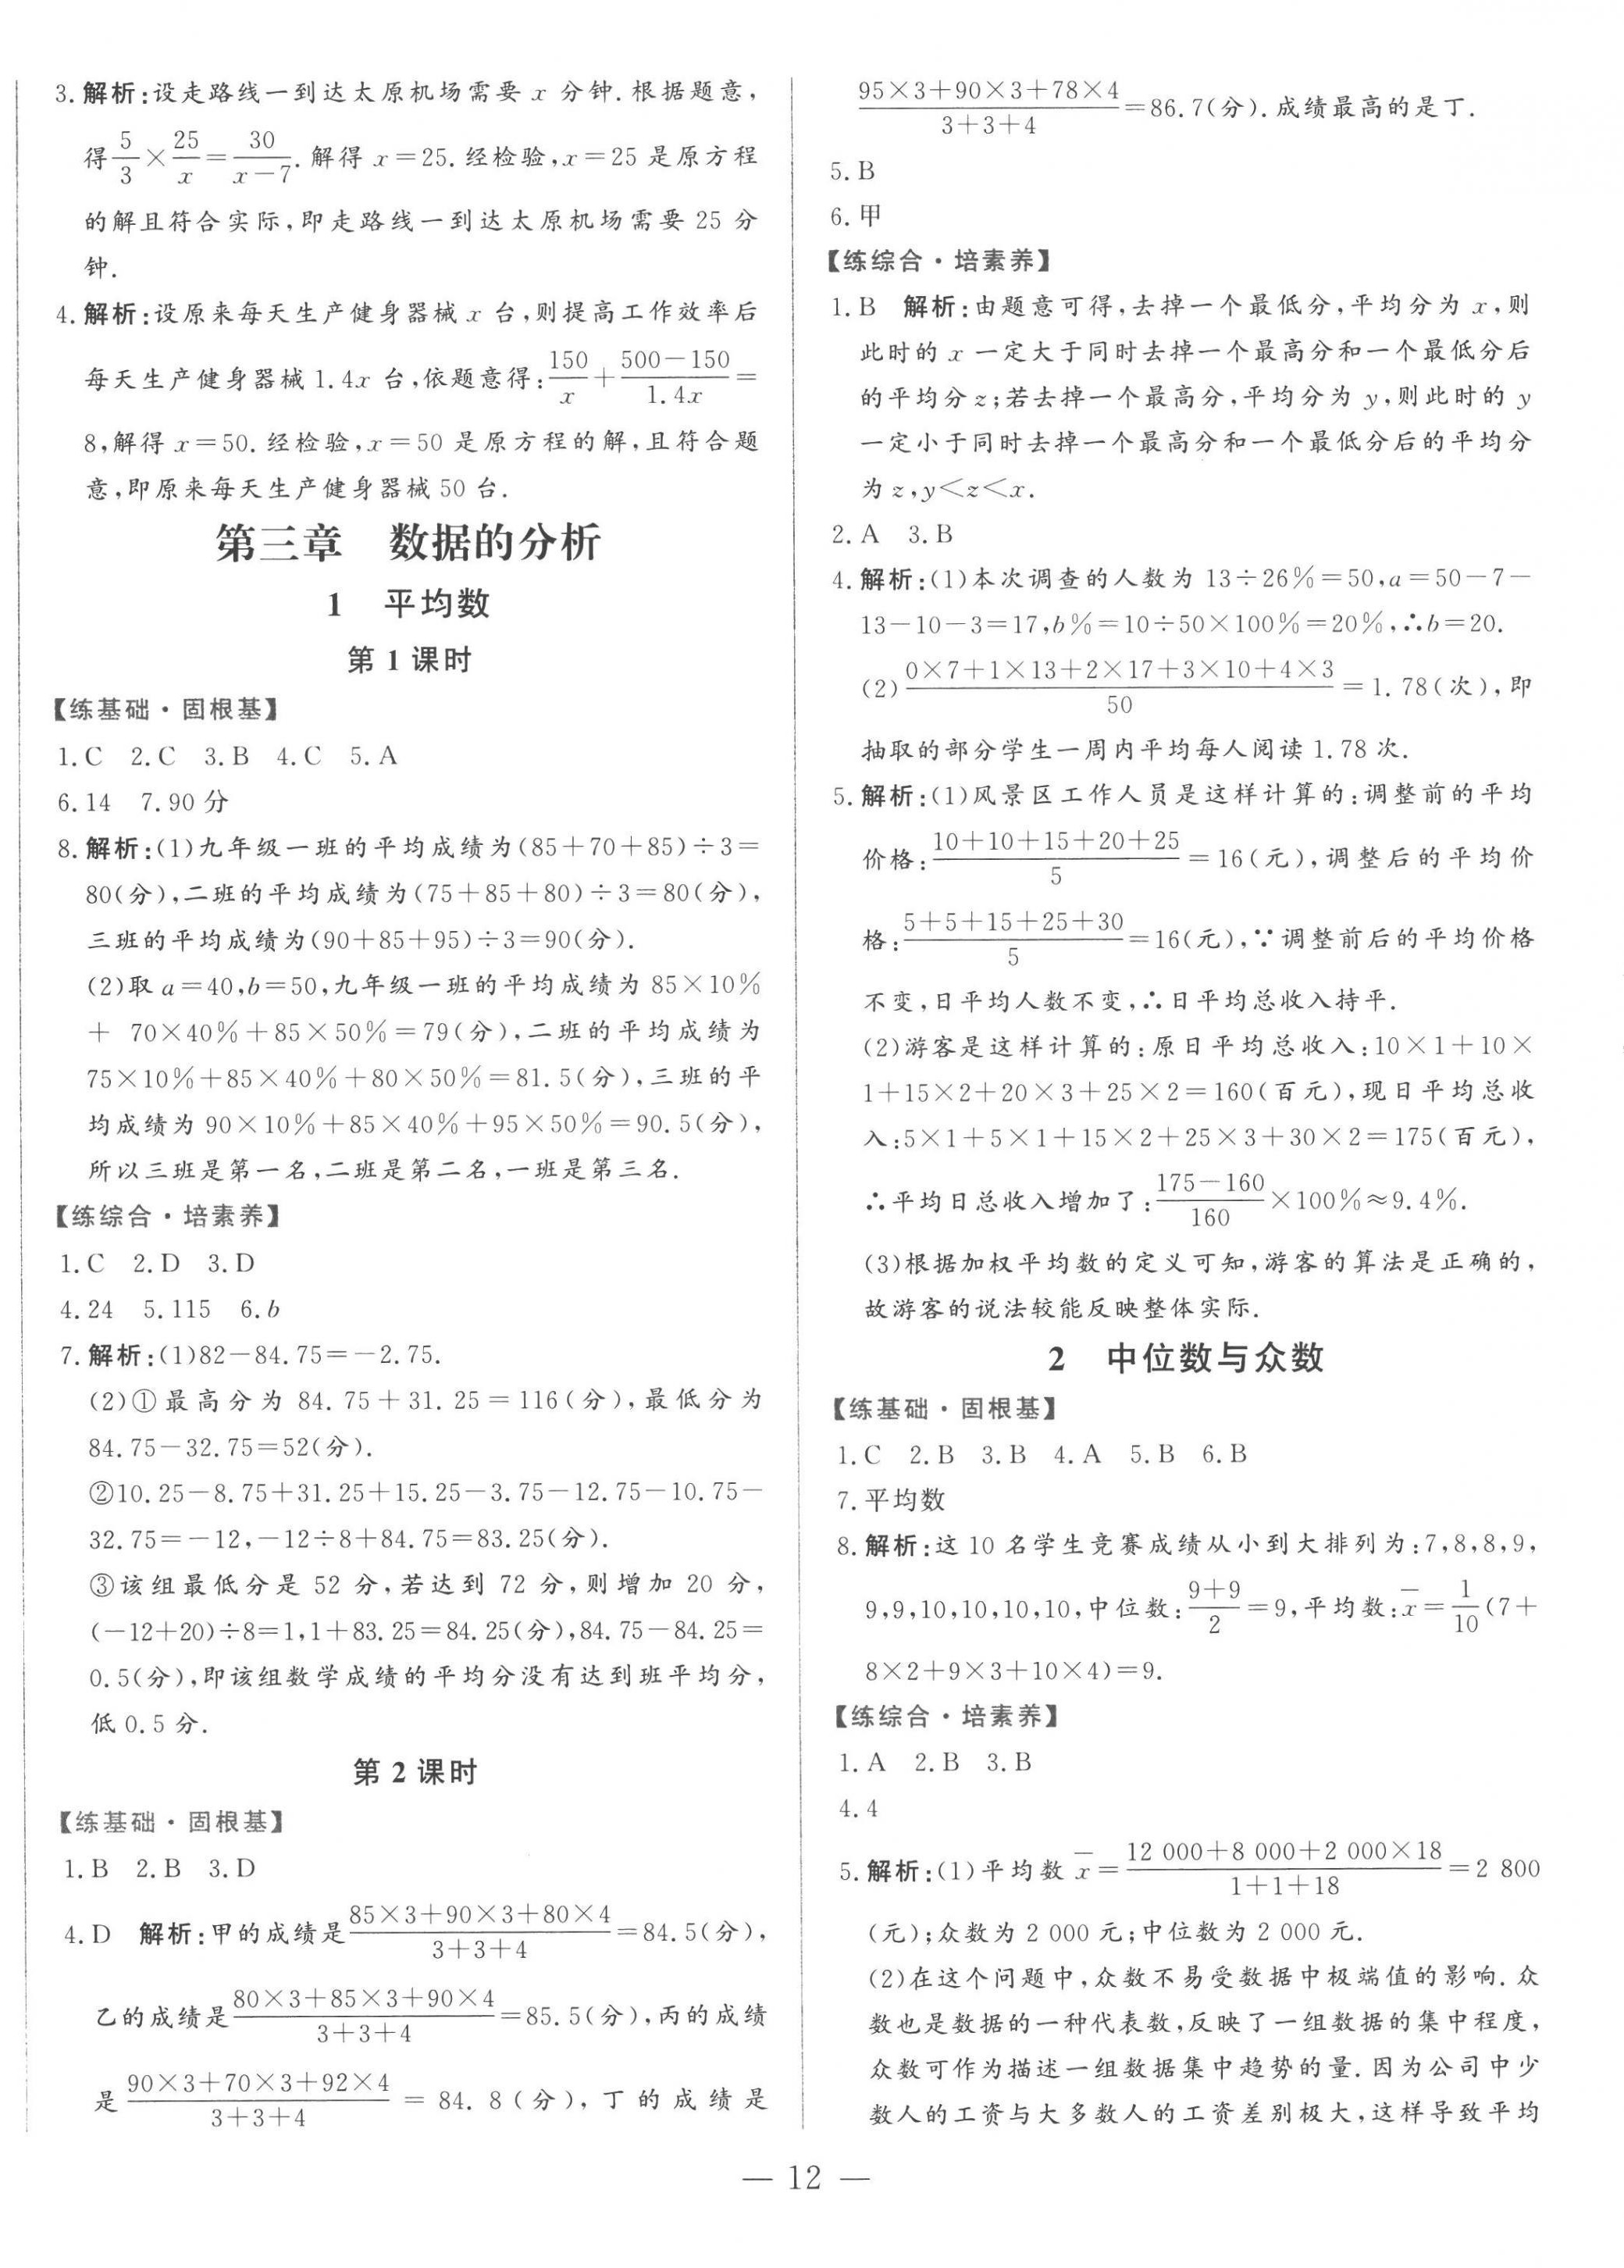 3.解析:设走路线一到达太原机场需要 x 分钟.根据题意,
得5/3×25/x=30/(x-7).解得 x=25.经检验,x=25 是原方程
的解且符合实际,即走路线一到达太原机场需要 25 分
钟.
4.解析:设原来每天生产健身器械 x 台,则提高工作效率后
每天生产健身器械1.4x 台,依题意得:150/x+(500-150)/1.4x=
8,解得 x=50.经检验,x=50 是原方程的解,且符合题
意,即原来每天生产健身器械 50 台.
第三章 数据的分析
1 平均数
第 1 课时
【练基础·固根基】
1.C 2.C 3.B 4.C 5.A
6.14 7.90 分
8.解析:(1)九年级一班的平均成绩为(85+70+85)÷3=
80(分),二班的平均成绩为(75+85+80)÷3=80(分),
三班的平均成绩为(90+85+95)÷3=90(分).
(2)取 a=40,b=50,九年级一班的平均成绩为 85×10%
+ 70×40%+85×50%=79(分),二班的平均成绩为
75×10%+85×40%+80×50%=81.5(分),三班的平
均成绩为 90×10%+85×40%+95×50%=90.5(分),
所以三班是第一名,二班是第二名,一班是第三名.
【练综合·培素养】
1.C 2.D 3.D
4.24 5.115 6.b
7.解析:(1)82-84.75=-2.75.
(2)①最高分为 84.75+31.25=116(分),最低分为
84.75-32.75=52(分).
②10.25-8.75+31.25+15.25-3.75-12.75-10.75-
32.75=-12,-12÷8+84.75=83.25(分).
③该组最低分是 52 分,若达到 72 分,则增加 20 分,
(-12+20)÷8=1,1+83.25=84.25(分),84.75-84.25=
0.5(分),即该组数学成绩的平均分没有达到班平均分,
低 0.5 分.
第 2 课时
【练基础·固根基】
1.B 2.B 3.D
4.D 解析:甲的成绩是(85×3+90×3+80×4)/(3+3+4)=84.5(分),
乙的成绩是(80×3+85×3+90×4)/(3+3+4)=85.5(分),丙的成绩
是(90×3+70×3+92×4)/(3+3+4)=84.8(分),丁的成绩是
(95×3+90×3+78×4)/(3+3+4)=86.7(分).成绩最高的是丁.
5.B
6.甲
【练综合·培素养】
1.B 解析:由题意可得,去掉一个最低分,平均分为 x,则
此时的 x 一定大于同时去掉一个最高分和一个最低分后
的平均分 z;若去掉一个最高分,平均分为 y,则此时的 y
一定小于同时去掉一个最高分和一个最低分后的平均分
为 z,y<z<x.
2.A 3.B
4.解析:(1)本次调查的人数为 13÷26%=50,a=50-7-
13-10-3=17,b%=10÷50×100%=20%,∴b=20.
(2)(0×7+1×13+2×17+3×10+4×3)/50=1.78(次),即
抽取的部分学生一周内平均每人阅读 1.78 次.
5.解析:(1)风景区工作人员是这样计算的:调整前的平均
价格:(10+10+15+20+25)/5=16(元),调整后的平均价
格:(5+5+15+25+30)/5=16(元),∵调整前后的平均价格
不变,日平均人数不变,∴日平均总收入持平.
(2)游客是这样计算的:原日平均总收入:10×1+10×
1+15×2+20×3+25×2=160(百元),现日平均总收
入:5×1+5×1+15×2+25×3+30×2=175(百元),
∴平均日总收入增加了:(175-160)/160×100%≈9.4%.
(3)根据加权平均数的定义可知,游客的算法是正确的,
故游客的说法较能反映整体实际.
2 中位数与众数
【练基础·固根基】
1.C 2.B 3.B 4.A 5.B 6.B
7.平均数
8.解析:这 10 名学生竞赛成绩从小到大排列为:7,8,8,9,
9,9,10,10,10,10,中位数:(9+9)/2=9,平均数:x̄=1/10(7+
8×2+9×3+10×4)=9.
【练综合·培素养】
1.A 2.B 3.B
4.4
5.解析:(1)平均数 x̄=(12 000+8 000+2 000×18)/(1+1+18)=2 800
(元);众数为 2 000 元;中位数为 2 000 元.
(2)在这个问题中,众数不易受数据中极端值的影响.众
数也是数据的一种代表数,反映了一组数据的集中程度,
众数可作为描述一组数据集中趋势的量.因为公司中少
数人的工资与大多数人的工资差别极大,这样导致平均
— 12 —